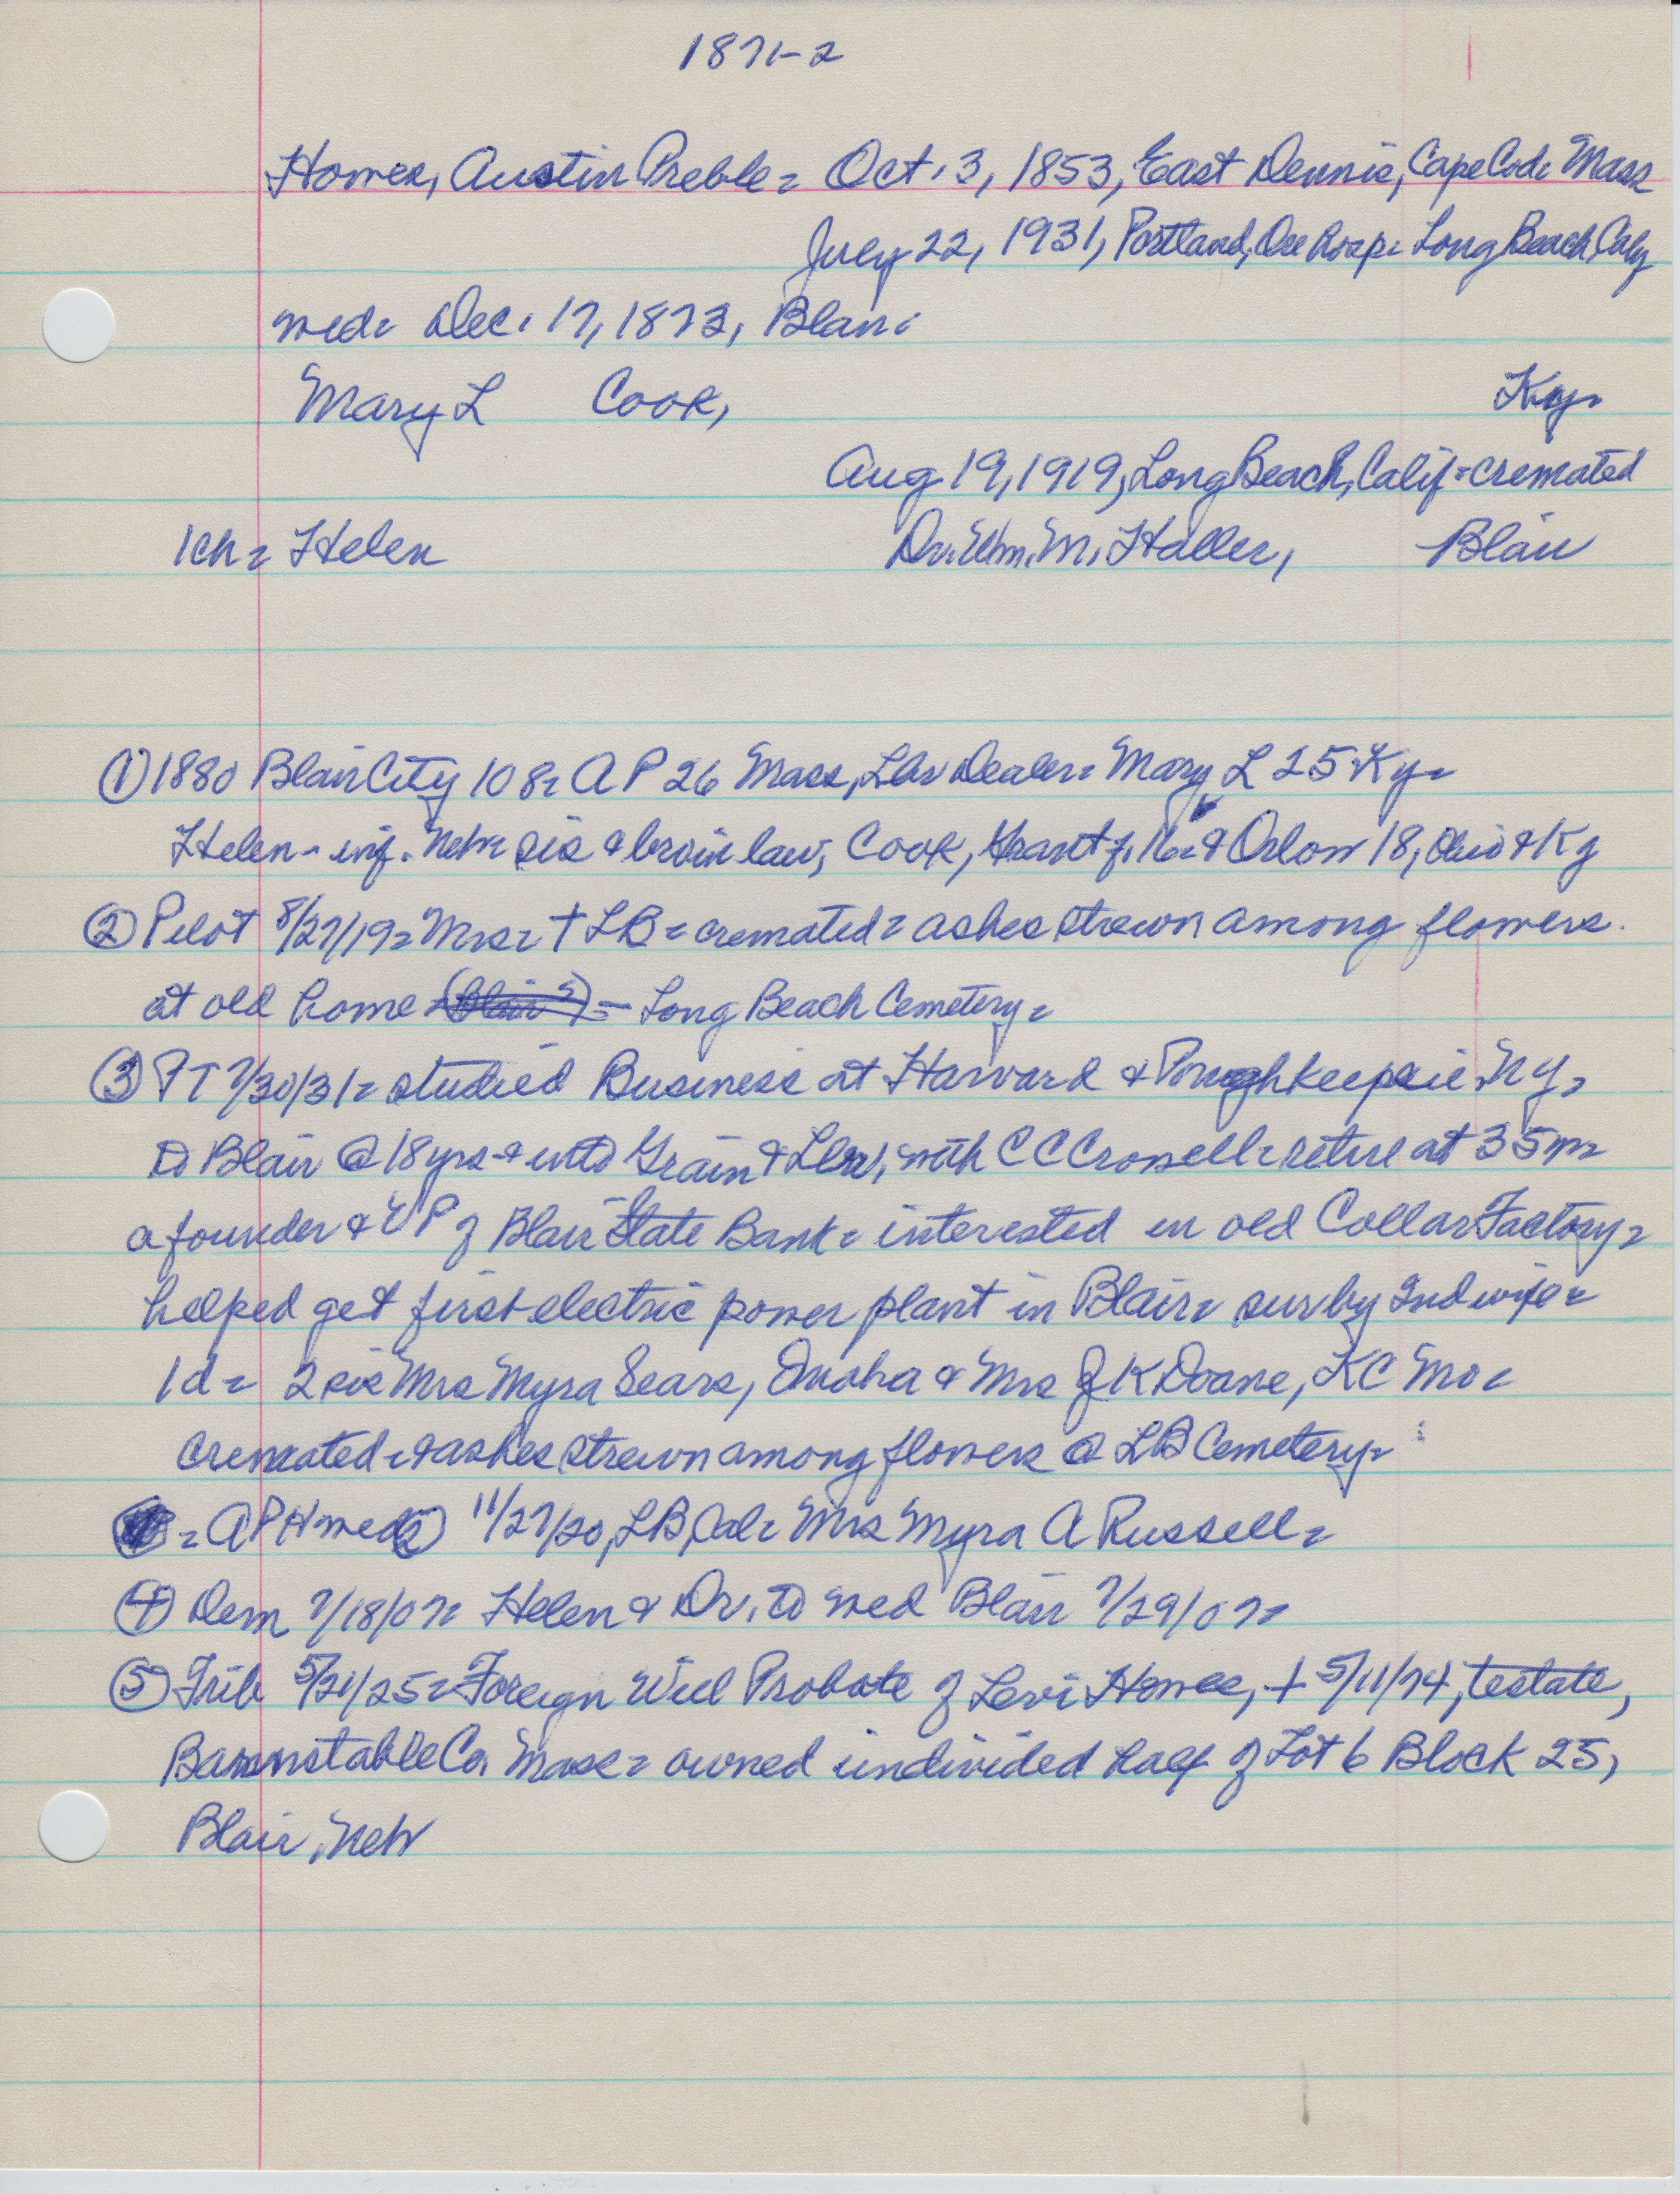 1871-2
Howes, Austin Preble = Oct. 3, 1853, East Dennis, Cape Cod, Mass
July 22, 1931, Portland, Ore Hosp = Long Beach, Calif
med = Dec. 17, 1873, Blair =
Mary L Cook, Ky =
Aug 19, 1919, Long Beach, Calif = cremated
1ch = Helen Dr. Wm. M. Haller, Blair
① 1880 Blair City 108 = A P 26 Mass, Lbr Dealer = Mary L 25 Ky =
Helen - inf. Nebr sis & bro in law, Cook, 16 = & Orlow 18, Ohio & Ky
② Pilot 8/27/19 = Mrs = † LB = cremated = ashes strewn among flowers.
at old home (Blair ?) = Long Beach Cemetery =
③ PT 7/30/31 = studied Business at Harvard & Poughkeepsie NY,
to Blair @ 18 yrs = & into Grain & Lbr, with C C Crowell = retire at 35 =
a founder & VP of Blair State Bank = interested in old Collar Factory =
helped get first electric power plant in Blair = sur by 2nd wife =
1d = 2 sis Mrs Myra Sears, Omaha & Mrs J K Doane, KC Mo =
cremated = & ashes strewn among flowers @ LB Cemetery =
= A P H med ② 11/27/20, LB, Cal = Mrs Myra A Russell =
④ Dem 7/18/07 = Helen & Dr. to wed Blair 7/29/07 =
⑤ Trib 5/21/25 = Foreign Will Probate of Levi Howes, † 5/11/74, testate,
Barnstable Co, Mass = owned undivided half of Lot 6 Block 25,
Blair, Nebr